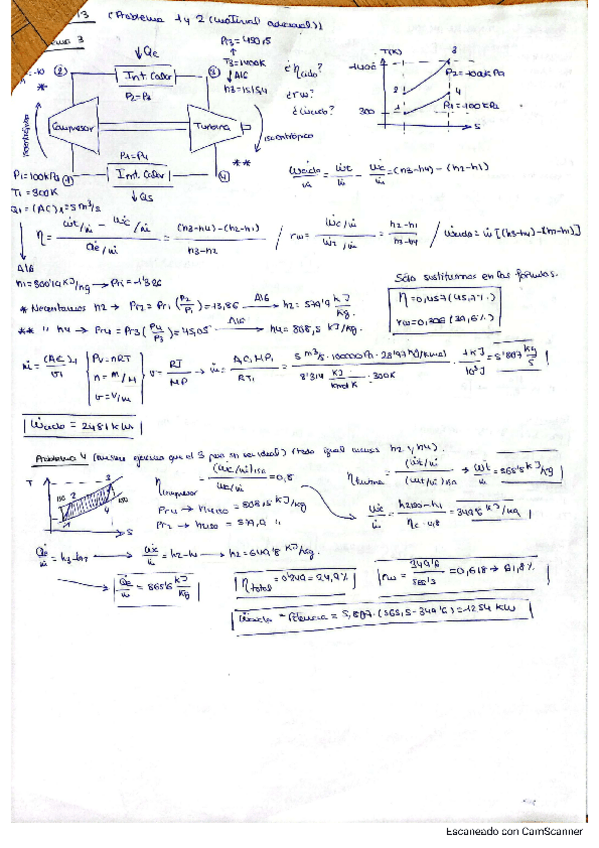 13 (Problema 1 y 2 (material adicional))
3
Pr3 = 450,5
T3 = 1400K
A16
h3 = 1515,4
Qe
Int. Calor
P2 = P3
Compresor
Turbina
isoentrópico
P1 = P4
Int. Calor
Qs
P1 = 100kPa
T1 = 300K
(AC)1 = 5 m³/s
¿ηciclo?
¿rw?
¿Ẇciclo?
T(K)
1400
300
P2 = 1000kPa
P1 = 100kPa
S
Ẇciclo/ṁ = Ẇt/ṁ - Ẇc/ṁ = (h3-h4) - (h2-h1)
η = (Ẇt/ṁ - Ẇc/ṁ)/(Q̇e/ṁ) = ((h3-h4)-(h2-h1))/(h3-h2) / rw = (Ẇc/ṁ)/(Ẇt/ṁ) = (h2-h1)/(h3-h4) / Ẇciclo = ṁ[(h3-h4)-(h2-h1)]
A16
h1 = 300'19 KJ/kg → Pr1 = 1'386
Sólo sustituimos en las fórmulas.
* Necesitamos h2 → Pr2 = Pr1 (P2/P1) = 13,86 A16 → h2 = 579'9 kJ/kg.
η = 0,457 (45,7%)
rw = 0,396 (39,6%)
** " h4 → Pr4 = Pr3 (P4/P3) = 45,05 A16 → h4 = 808,5 KJ/kg.
ṁ = (AC)1/v1 PV = nRT n = m/M v = V/m v = RT/MP → ṁ = AC1MP1/RT1 = (5 m³/s · 100000Pa · 28'97 kJ/Kmol)/(8'314 kJ/kmol K · 300K) · 1KJ/10³J = 5'807 kg/s
Ẇciclo = 2481 kW
Problema 4 (mismo ejercicio que el 3 pero sin ser ideal) (todo igual excepto h2 y h4).
T
S
ηcompresor = (Ẇc/ṁ)iso/(Ẇc/ṁ) = 0,8
ηturbina = (Ẇt/ṁ)/(Ẇt/ṁ)iso → Ẇt/ṁ = 565'5 kJ/kg
Pr4 → h4iso = 808,5 kJ/kg
Pr2 → h2iso = 579,9 "
Ẇc/ṁ = (h2iso-h1)/ηc = 349'6 kJ/kg
Q̇e/ṁ = h3-h2 → Ẇc/ṁ = h2-h1 → h2 = 649'8 kJ/kg.
Q̇e/ṁ = 865'6 kJ/kg
ηtotal = 0'249 = 24,9%
rw = 349'6/565'5 = 0,618 → 61,8%
Ẇciclo = Potencia = 5,807 · (565,5-349'6) = 1254 kW
Escaneado con CamScanner